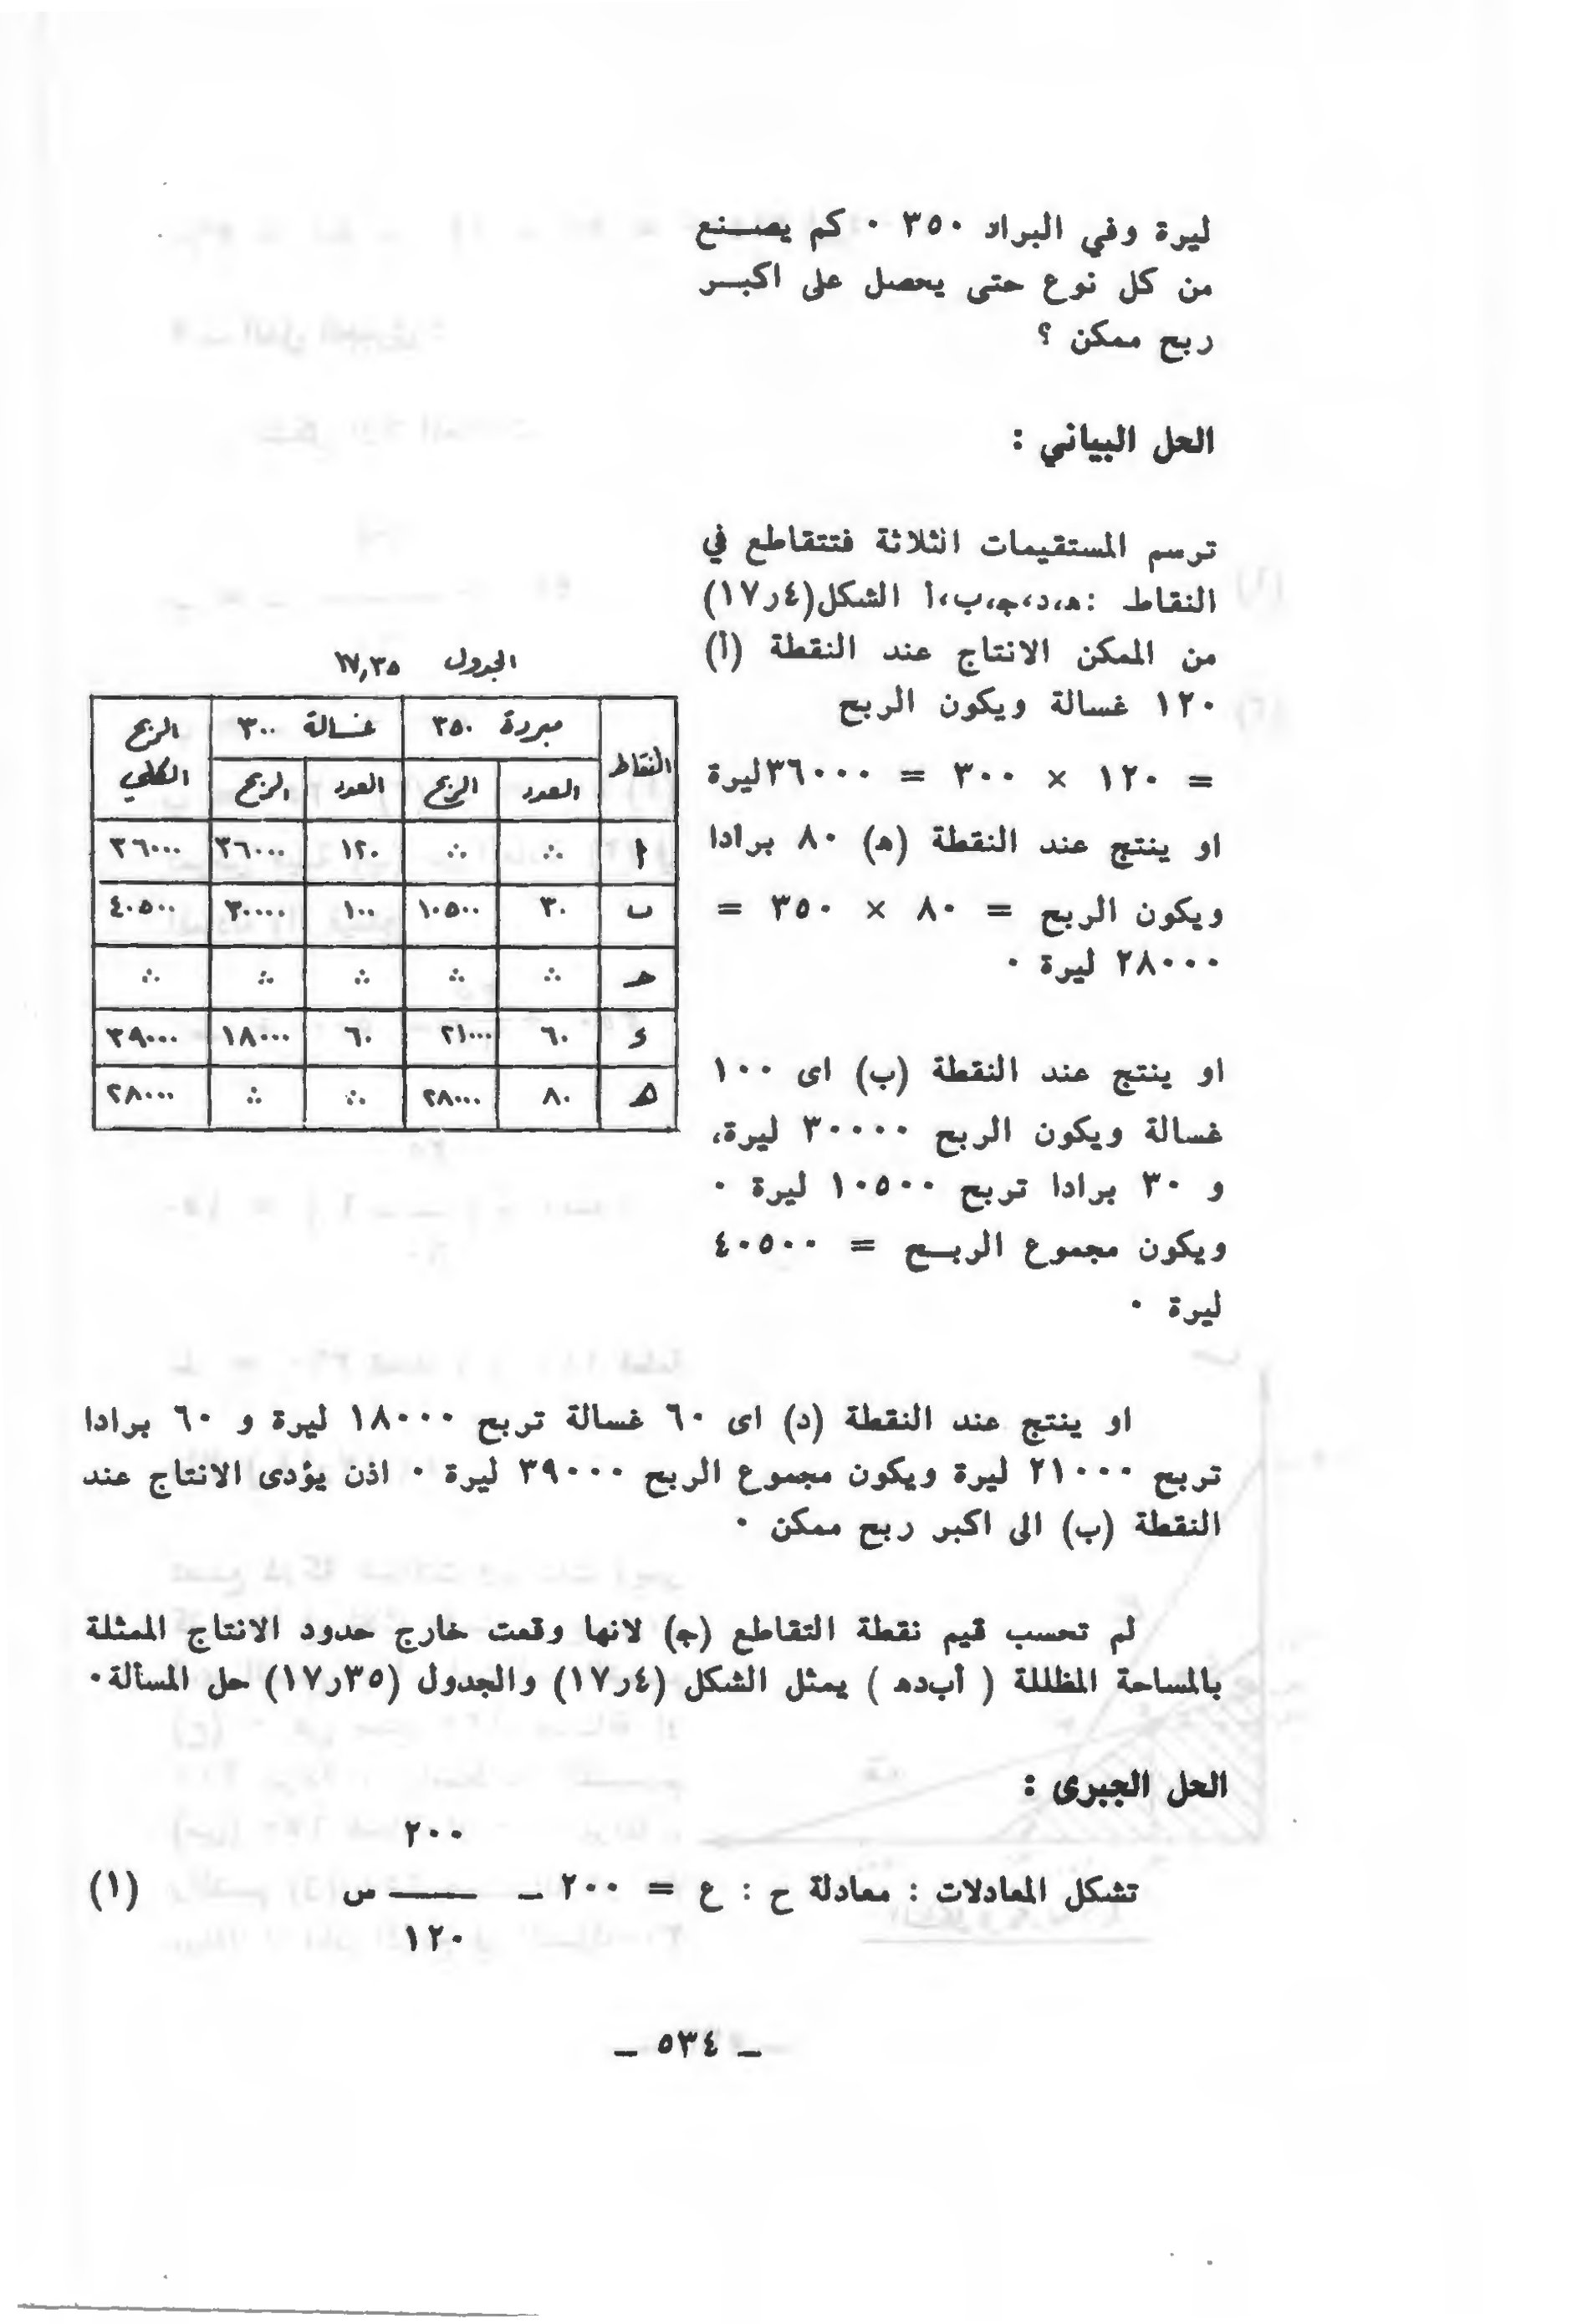 ليرة وفي البراد ٣٥٠ ٠ كم يصــنع
من كل نوع حتى يحصل على اكبــر
ربح ممكن ؟
الحل البياني :
ترسم المستقيمات الثلاثة فتتقاطع في
النقاط :ه،د،ج،ب،أ الشكل(٤ر١٧)
من الممكن الانتاج عند النقطة (أ)
١٢٠ غسالة ويكون الربح
= ١٢٠ × ٣٠٠ = ٣٦٠٠٠ليرة
او ينتج عند النقطة (ه) ٨٠ برادا
ويكون الربح = ٨٠ × ٣٥٠ =
٢٨٠٠٠ ليرة ٠
او ينتج عند النقطة (ب) اى ١٠٠
غسالة ويكون الربح ٣٠٠٠٠ ليرة،
و ٣٠ برادا تربح ١٠٥٠٠ ليرة ٠
ويكون مجموع الربــح = ٤٠٥٠٠
ليرة ٠
الجدول ١٧,٣٥
النقاط مبردة ٣٥٠ غسالة ٣٠٠ الربح الكلي
العدد الربح العدد الربح
أ ∴ ∴ ١٢٠ ٣٦٠٠٠ ٣٦٠٠٠
ب ٣٠ ١٠٥٠٠ ١٠٠ ٣٠٠٠٠ ٤٠٥٠٠
حـ ∴ ∴ ∴ ∴ ∴
د ٦٠ ٢١٠٠٠ ٦٠ ١٨٠٠٠ ٣٩٠٠٠
هـ ٨٠ ٢٨٠٠٠ ∴ ∴ ٢٨٠٠٠
او ينتج عند النقطة (د) اى ٦٠ غسالة تربح ١٨٠٠٠ ليرة و ٦٠ برادا
تربح ٢١٠٠٠ ليرة ويكون مجموع الربح ٣٩٠٠٠ ليرة ٠ اذن يؤدى الانتاج عند
النقطة (ب) الى اكبر ربح ممكن ٠
لم تحسب قيم نقطة التقاطع (ج) لانها وقعت خارج حدود الانتاج الممثلة
بالمساحة المظللة ( أبده ) يمثل الشكل (٤ر١٧) والجدول (٣٥ر١٧) حل المسألة٠
الحل الجبرى :
٢٠٠
تشكل المعادلات : معادلة ح : ع = ٢٠٠ ـ ـــــ س (١)
١٢٠
ـ ٥٣٤ ـ